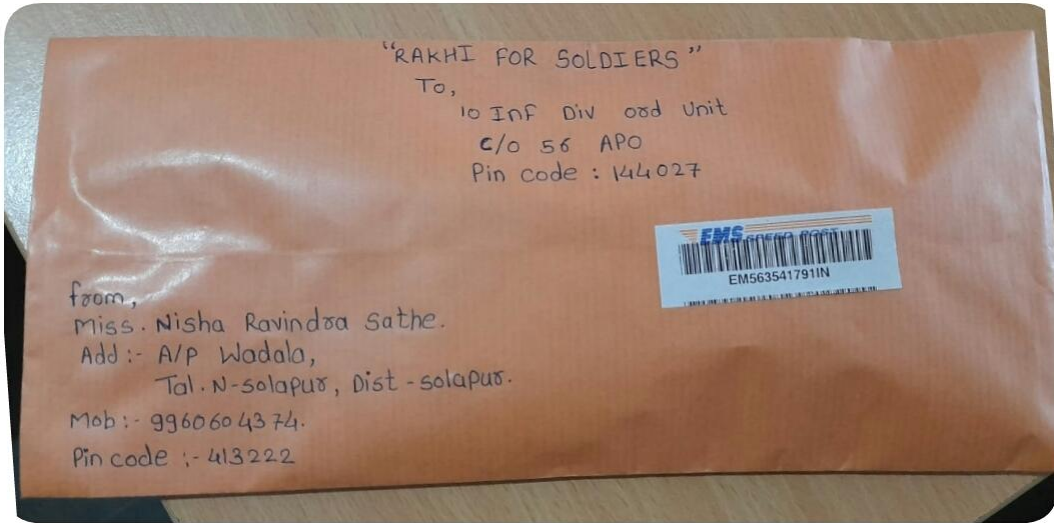 "RAKHI FOR SOLDIERS"
To,
10 Inf Div ord Unit
C/o 56 APO
Pin code : 144027
EMS SPEED POST
EM563541791IN
from,
Miss. Nisha Ravindra Sathe.
Add :- A/P Wadala,
Tal. N-solapur, Dist - solapur.
Mob :- 9960604374.
Pin code :- 413222